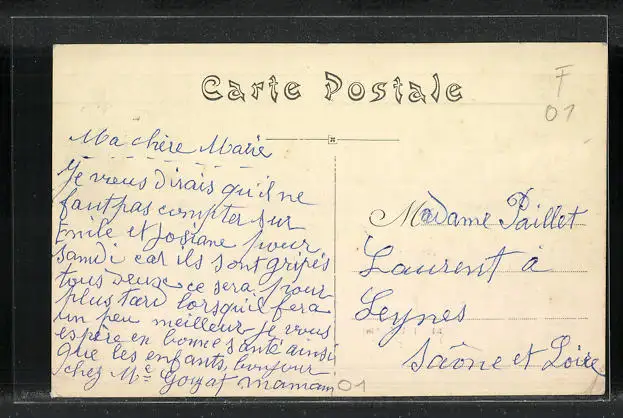 Carte Postale
F
01
Ma chère Marie
Je vieus Dirais qu'il ne
faut pas compter sur
Emile et Josiane pour
samdi car ils sont gripés
tous deux ce sera pour
plus tard lorsqu'il fera
un peu meilleur je vous
espère en bonne santé ainsi
que les enfants, bonjour
chez Me Goyat maman
01
Madame Paillet
Laurent à
Leynes
Saône et Loire